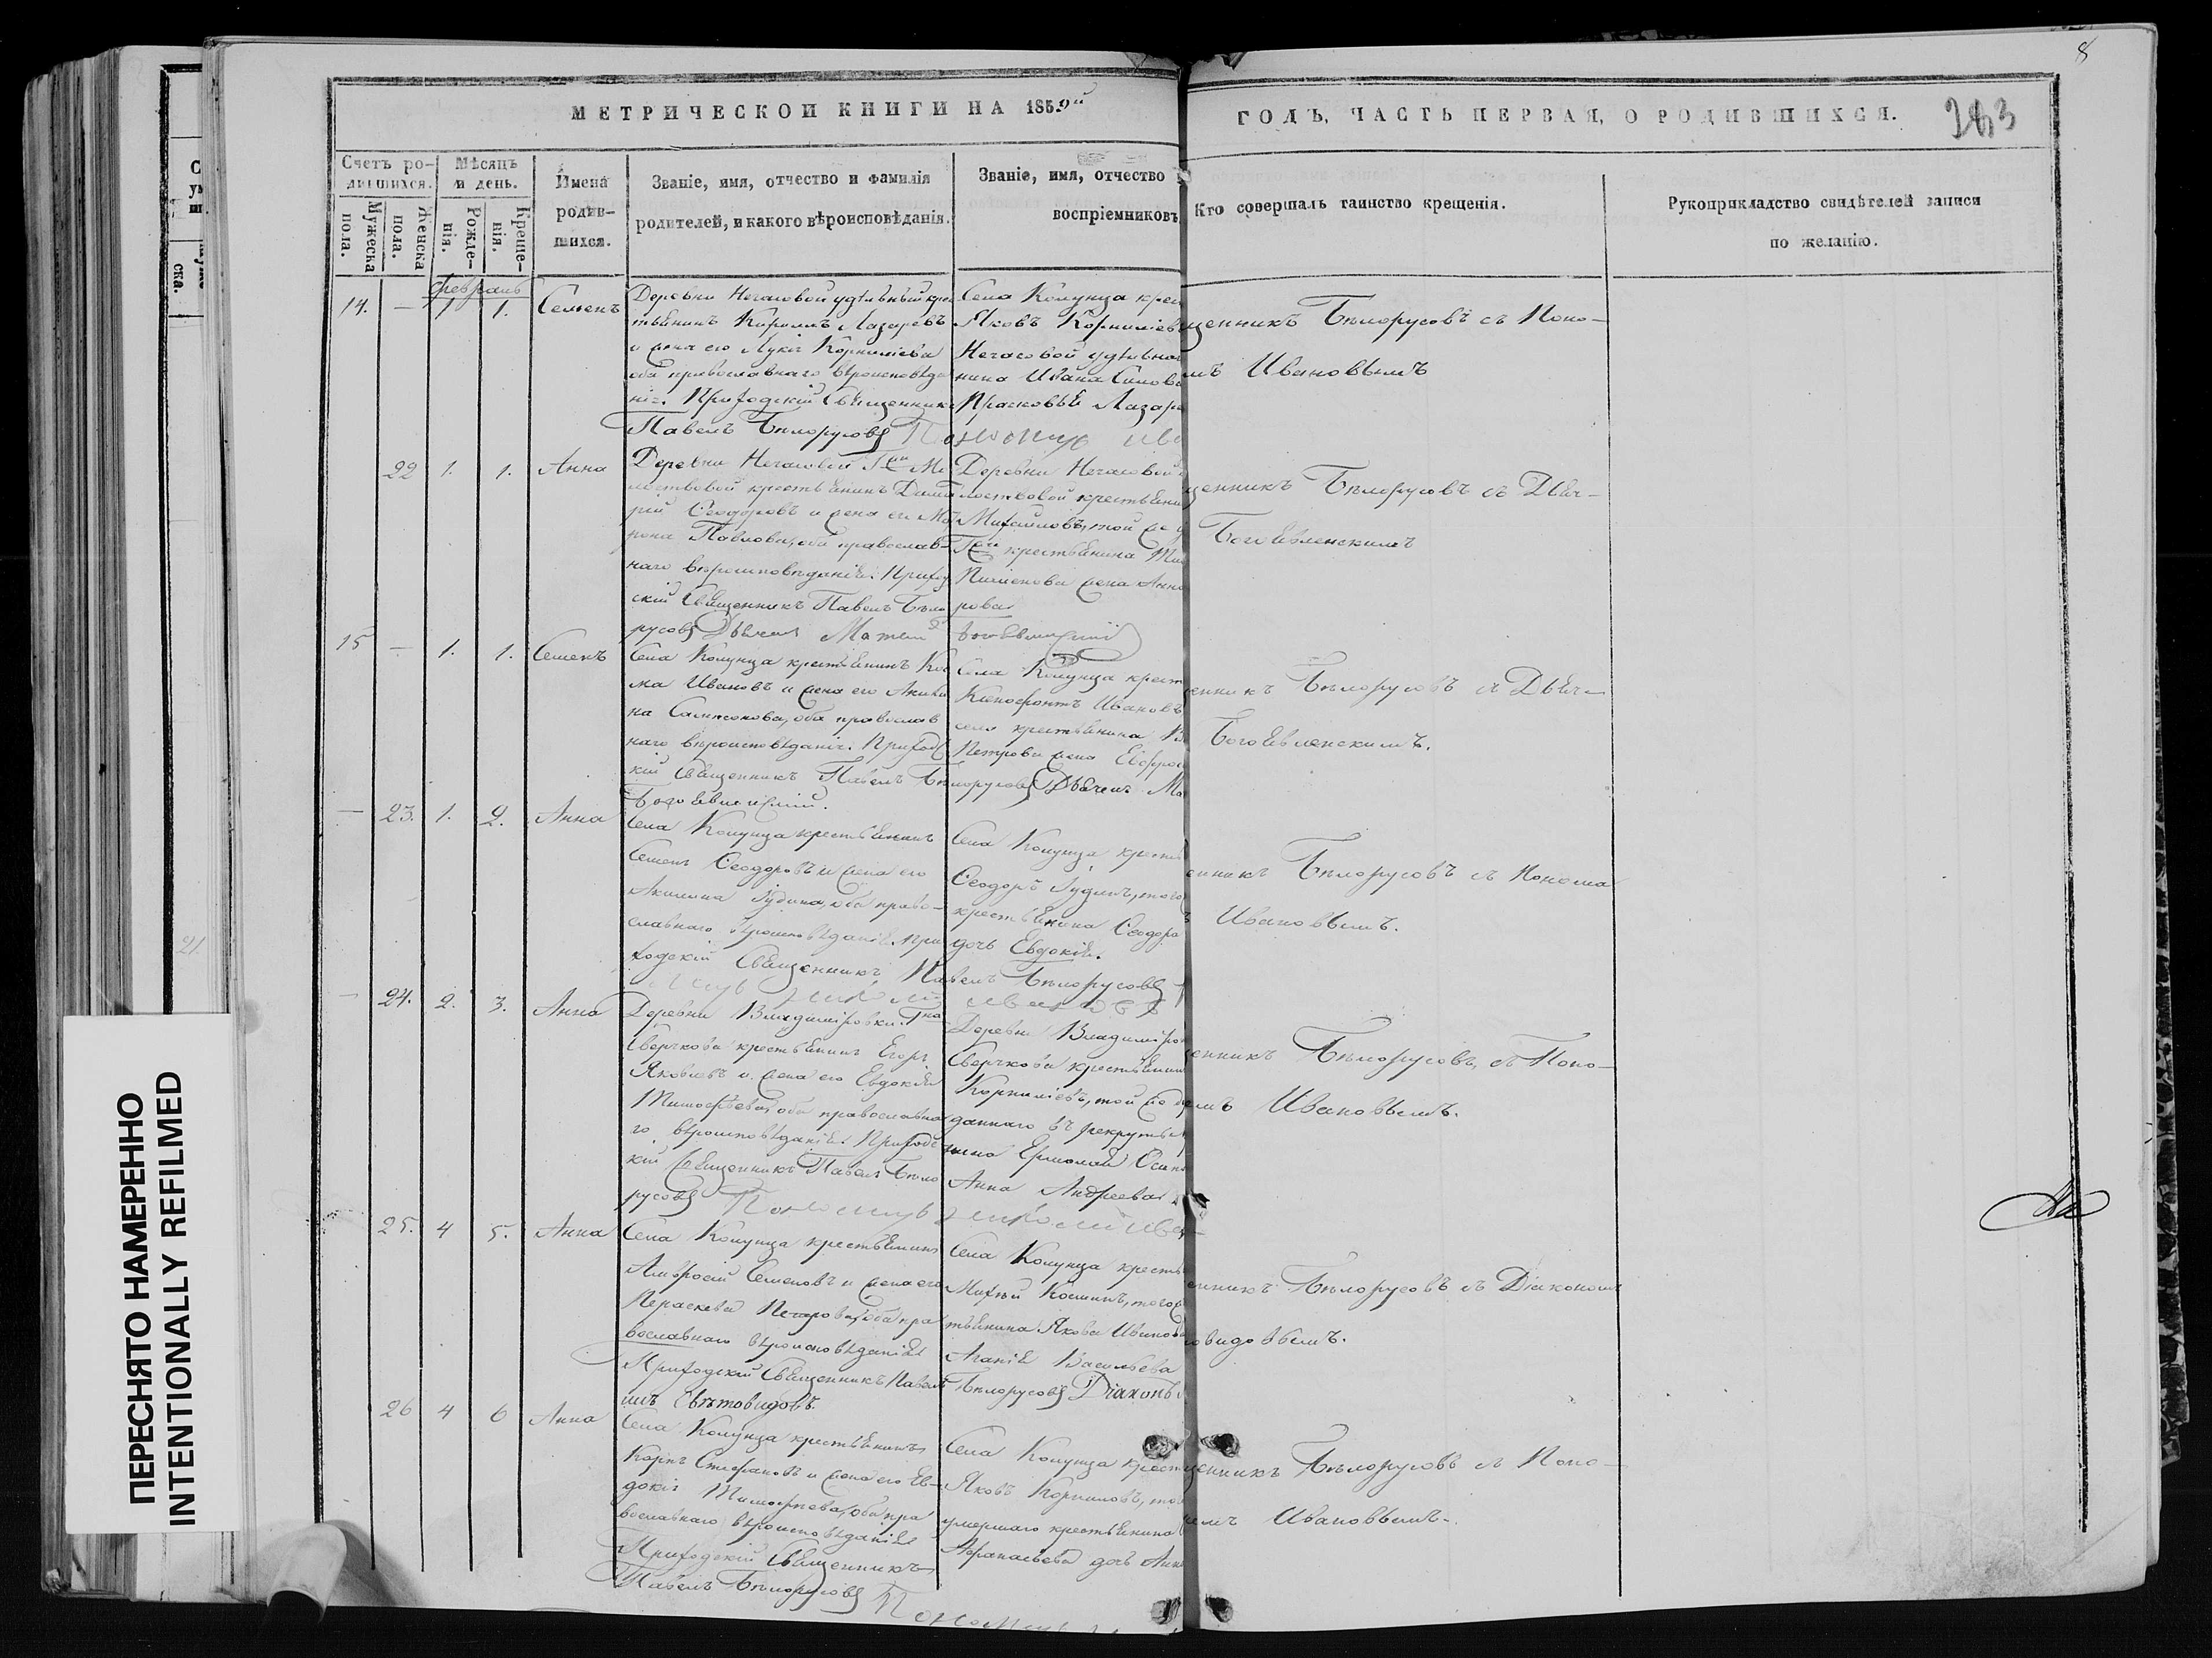 8
МЕТРИЧЕСКОЙ КНИГИ НА 1859й
ГОДЪ, ЧАСТЬ ПЕРВАЯ, О РОДИВШИХСЯ.
Счетъ ро-
дившихся.
Мужеска
пола.
Женска
пола.
Мѣсяцъ
и день.
Рожде-
нія.
Креще-
нія.
Имена
родив-
шихся.
Званіе, имя, отчество и фамилія
родителей, и какого вѣроисповѣданія.
Званіе, имя, отчество
воспріемниковъ
Кто совершалъ таинство крещенія.
Рукоприкладство свидѣтелей записи
по желанію.
февраль
14. — 1 1. Семенъ
Деревни Нечасовой удѣльный крес
тьянинъ Кириллъ Лазаревъ
и жена его Корниліева
оба православнаго вѣроисповѣда
нія. Приходскій Священникъ
Павелъ Бѣлорусовъ
Села Колунца крес
Яковъ Корниліевъ
Нечасовой удѣльна
нина Ивана
Прасковья Лазаре
щенникъ Бѣлорусовъ съ Поно-
мъ Ивановымъ
22 1. 1. Анна
Деревни Нечасовой
крестьянинъ Дмит
рій Ѳеодоровъ и жена его Мат
рона Павлова, оба православ-
наго вѣроисповѣданія. Приход
скій Священникъ Павелъ Бѣло
русовъ Дьячекъ
Деревни Нечасовой
крестьянинъ
Михайловъ, той же
крестьянина
Пименова жена Анна
рова
щенникъ Бѣлорусовъ съ Дьяч-
Богоявленскимъ
15 — 1. 1. Семенъ
Села Колунца крестьянинъ Коз
ма Ивановъ и жена его Акили
на Сампсонова, оба православ
наго вѣроисповѣданія. Приходс
кій Священникъ Павелъ Бѣлорусовъ Дьячекъ
Богоявленскій.
Села Колунца крест
Ксенофонтъ Ивановъ
села крестьянина
Петрова жена Евфрос
енникъ Бѣлорусовъ съ Дьяч-
Богоявленскимъ.
— 23. 1. 2. Анна
Села Колунца крестьянинъ
Семенъ Ѳеодоровъ и жена его
Акилина Іудина, оба право-
славнаго вѣроисповѣданія. При
ходскій Священникъ Павелъ Бѣлорусовъ
Села Колунца кресть
Ѳеодоръ Іудинъ, того
крестьянина Ѳеодора
дочь Евдокія.
енникъ Бѣлорусовъ съ Понома
Ивановымъ.
— 24. 2. 3. Анна
Деревни Владиміровки Гна
Сверчкова крестьянинъ Егоръ
Яковлевъ и жена его Евдокія
Тимофѣева, оба православна
го вѣроисповѣданія. Приходс
кій Священникъ Павелъ Бѣло
русовъ
Деревни Владиміров
Сверчкова крестьянин
Корниліевъ, той же
даннаго въ рекруты
нина Ермолая Осип
Анна Андреева
енникъ Бѣлорусовъ, съ Поно-
емъ Ивановымъ.
25. 4 5. Анна
Села Колунца крестьянинъ
Амвросій Семеновъ и жена его
Параскева Петрова, оба пра
вославнаго вѣроисповѣданія
Приходскій Священникъ Павелъ Бѣлорусовъ Діаконъ
Свѣтовидовъ.
Села Колунца кресть
Михѣй Козминъ, того
тьянина Якова Иванова
Агапія Васильева
енникъ Бѣлорусовъ съ Діакономъ
овидовымъ.
26 4 6 Анна
Села Колунца крестьянинъ
Карпъ Стефановъ и жена его Ев-
докія Тимофѣева, оба пра
вославнаго вѣроисповѣданія
Приходскій Священникъ
Павелъ Бѣлорусовъ
Села Колунца крест
Яковъ Корниловъ, то
умершаго крестьянина
Афанасьева дочь Анна
щенникъ Бѣлорусовъ съ Поно-
емъ Ивановымъ.
21.
ПЕРЕСНЯТО НАМЕРЕННО
INTENTIONALLY REFILMED